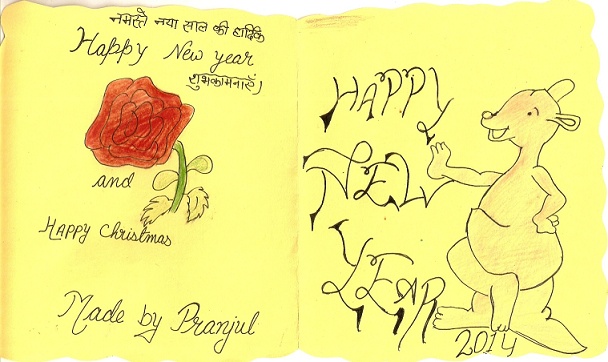 नमस्ते नया साल की हार्दिक
Happy New year
शुभकामनाएँ।
and
HAPPY Christmas
Made by Pranjul
HAPPY
NEW
YEAR
2014